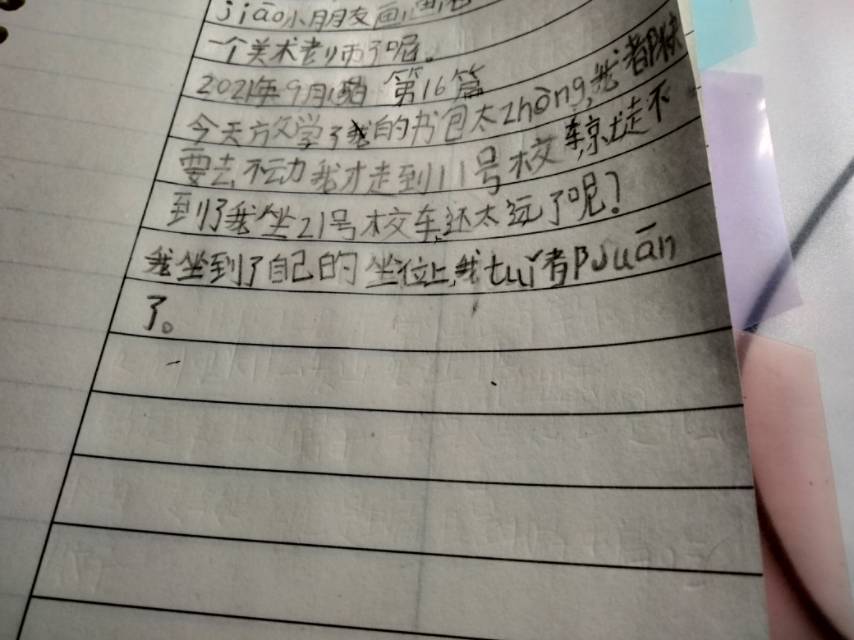 jiāo小朋友画画
一个美术老师了呢。
2021年9月 第16篇
今天放学了我的书包太zhòng,我都快
要去不动我才走到11号校车,就走不
到了我坐21号校车,还太远了呢?
我坐到了自己的坐位上,我tuǐ者Puān
了。